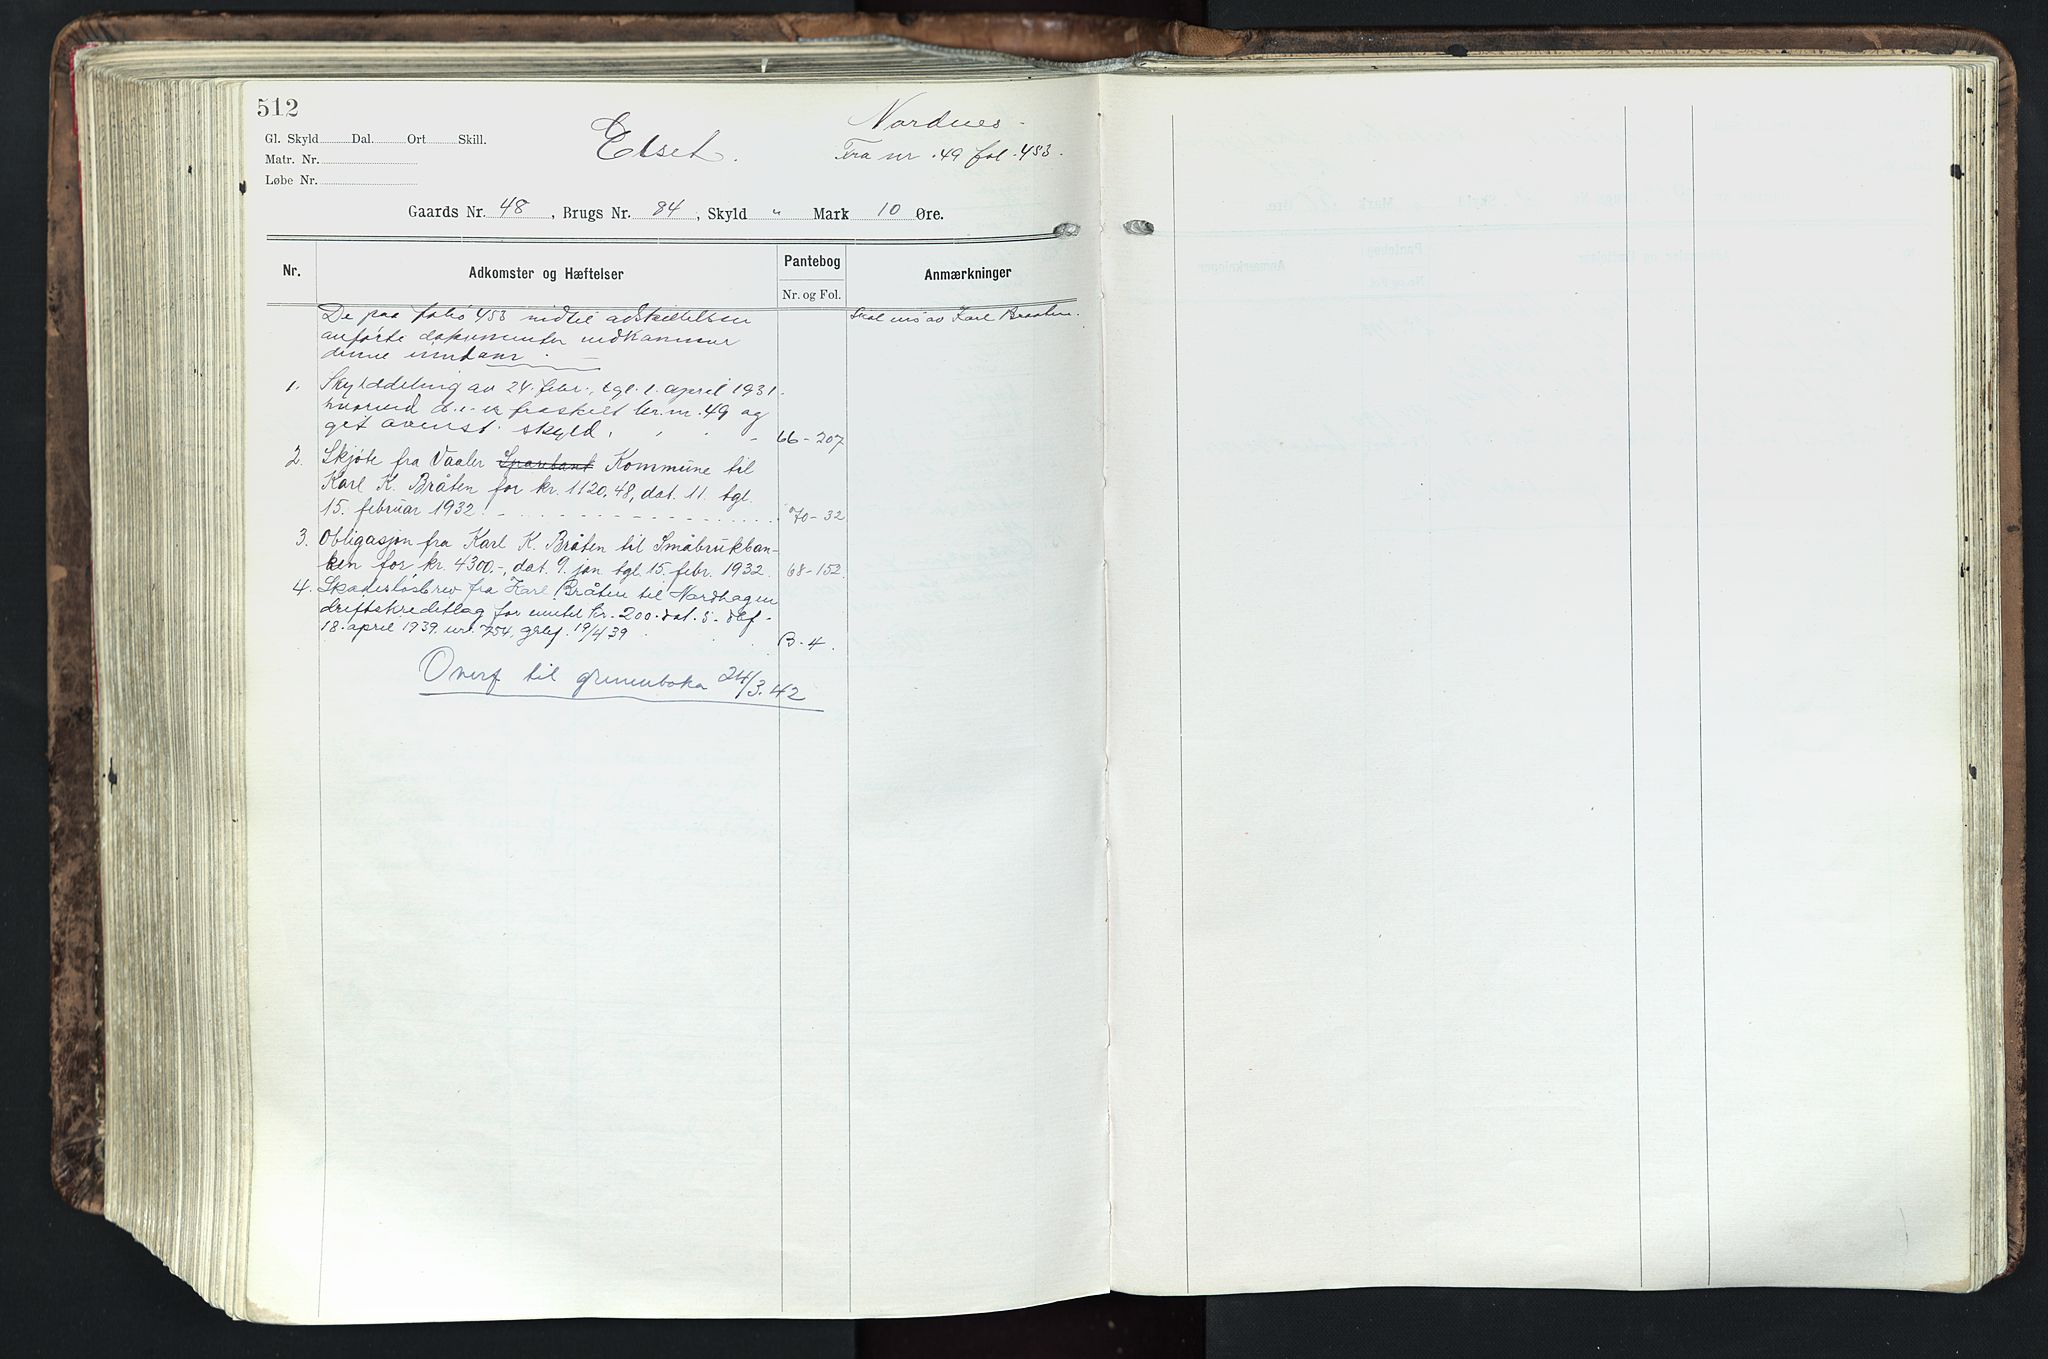 512
Gl. Skyld Dal. Ort Skill.
Matr. Nr.
Løbe Nr.
Elset.
Nordnes
Fra nr. 49 fol. 453.
Gaards Nr. 48, Brugs Nr. 84, Skyld " Mark 10 Øre.
Nr. Adkomster og Hæftelser Pantebog Anmærkninger
Nr. og Fol.
De paa folio 453 indtil adskillelsen Skal eies av Karl Braaten.
anførte dokumenter vedkommer
denne eiendom.
1. Skylddeling av 24. febr., tgl. 1. april 1931
hvorved d. e. er fraskilt br. nr. 49 og
git ovenst. skyld. 66-207
2. Skjøte fra Vaaler Sparebank Kommune til
Karl K. Bråten for kr. 1120,48, dat. 11. tgl.
15. februar 1932. 70-32
3. Obligasjon fra Karl K. Bråten til Småbrukban-
ken for kr. 4300.-, dat. 9. jan. tgl. 15. febr. 1932. 68-152
4. Skadesløsbrev fra Karl Bråten til Nordhagen
driftskreditlag for inntil kr. 200. dat. 5.
18. april 1939. nr. 754, 19/4 39 B-4.
Overf til grunnboka 24/3.42